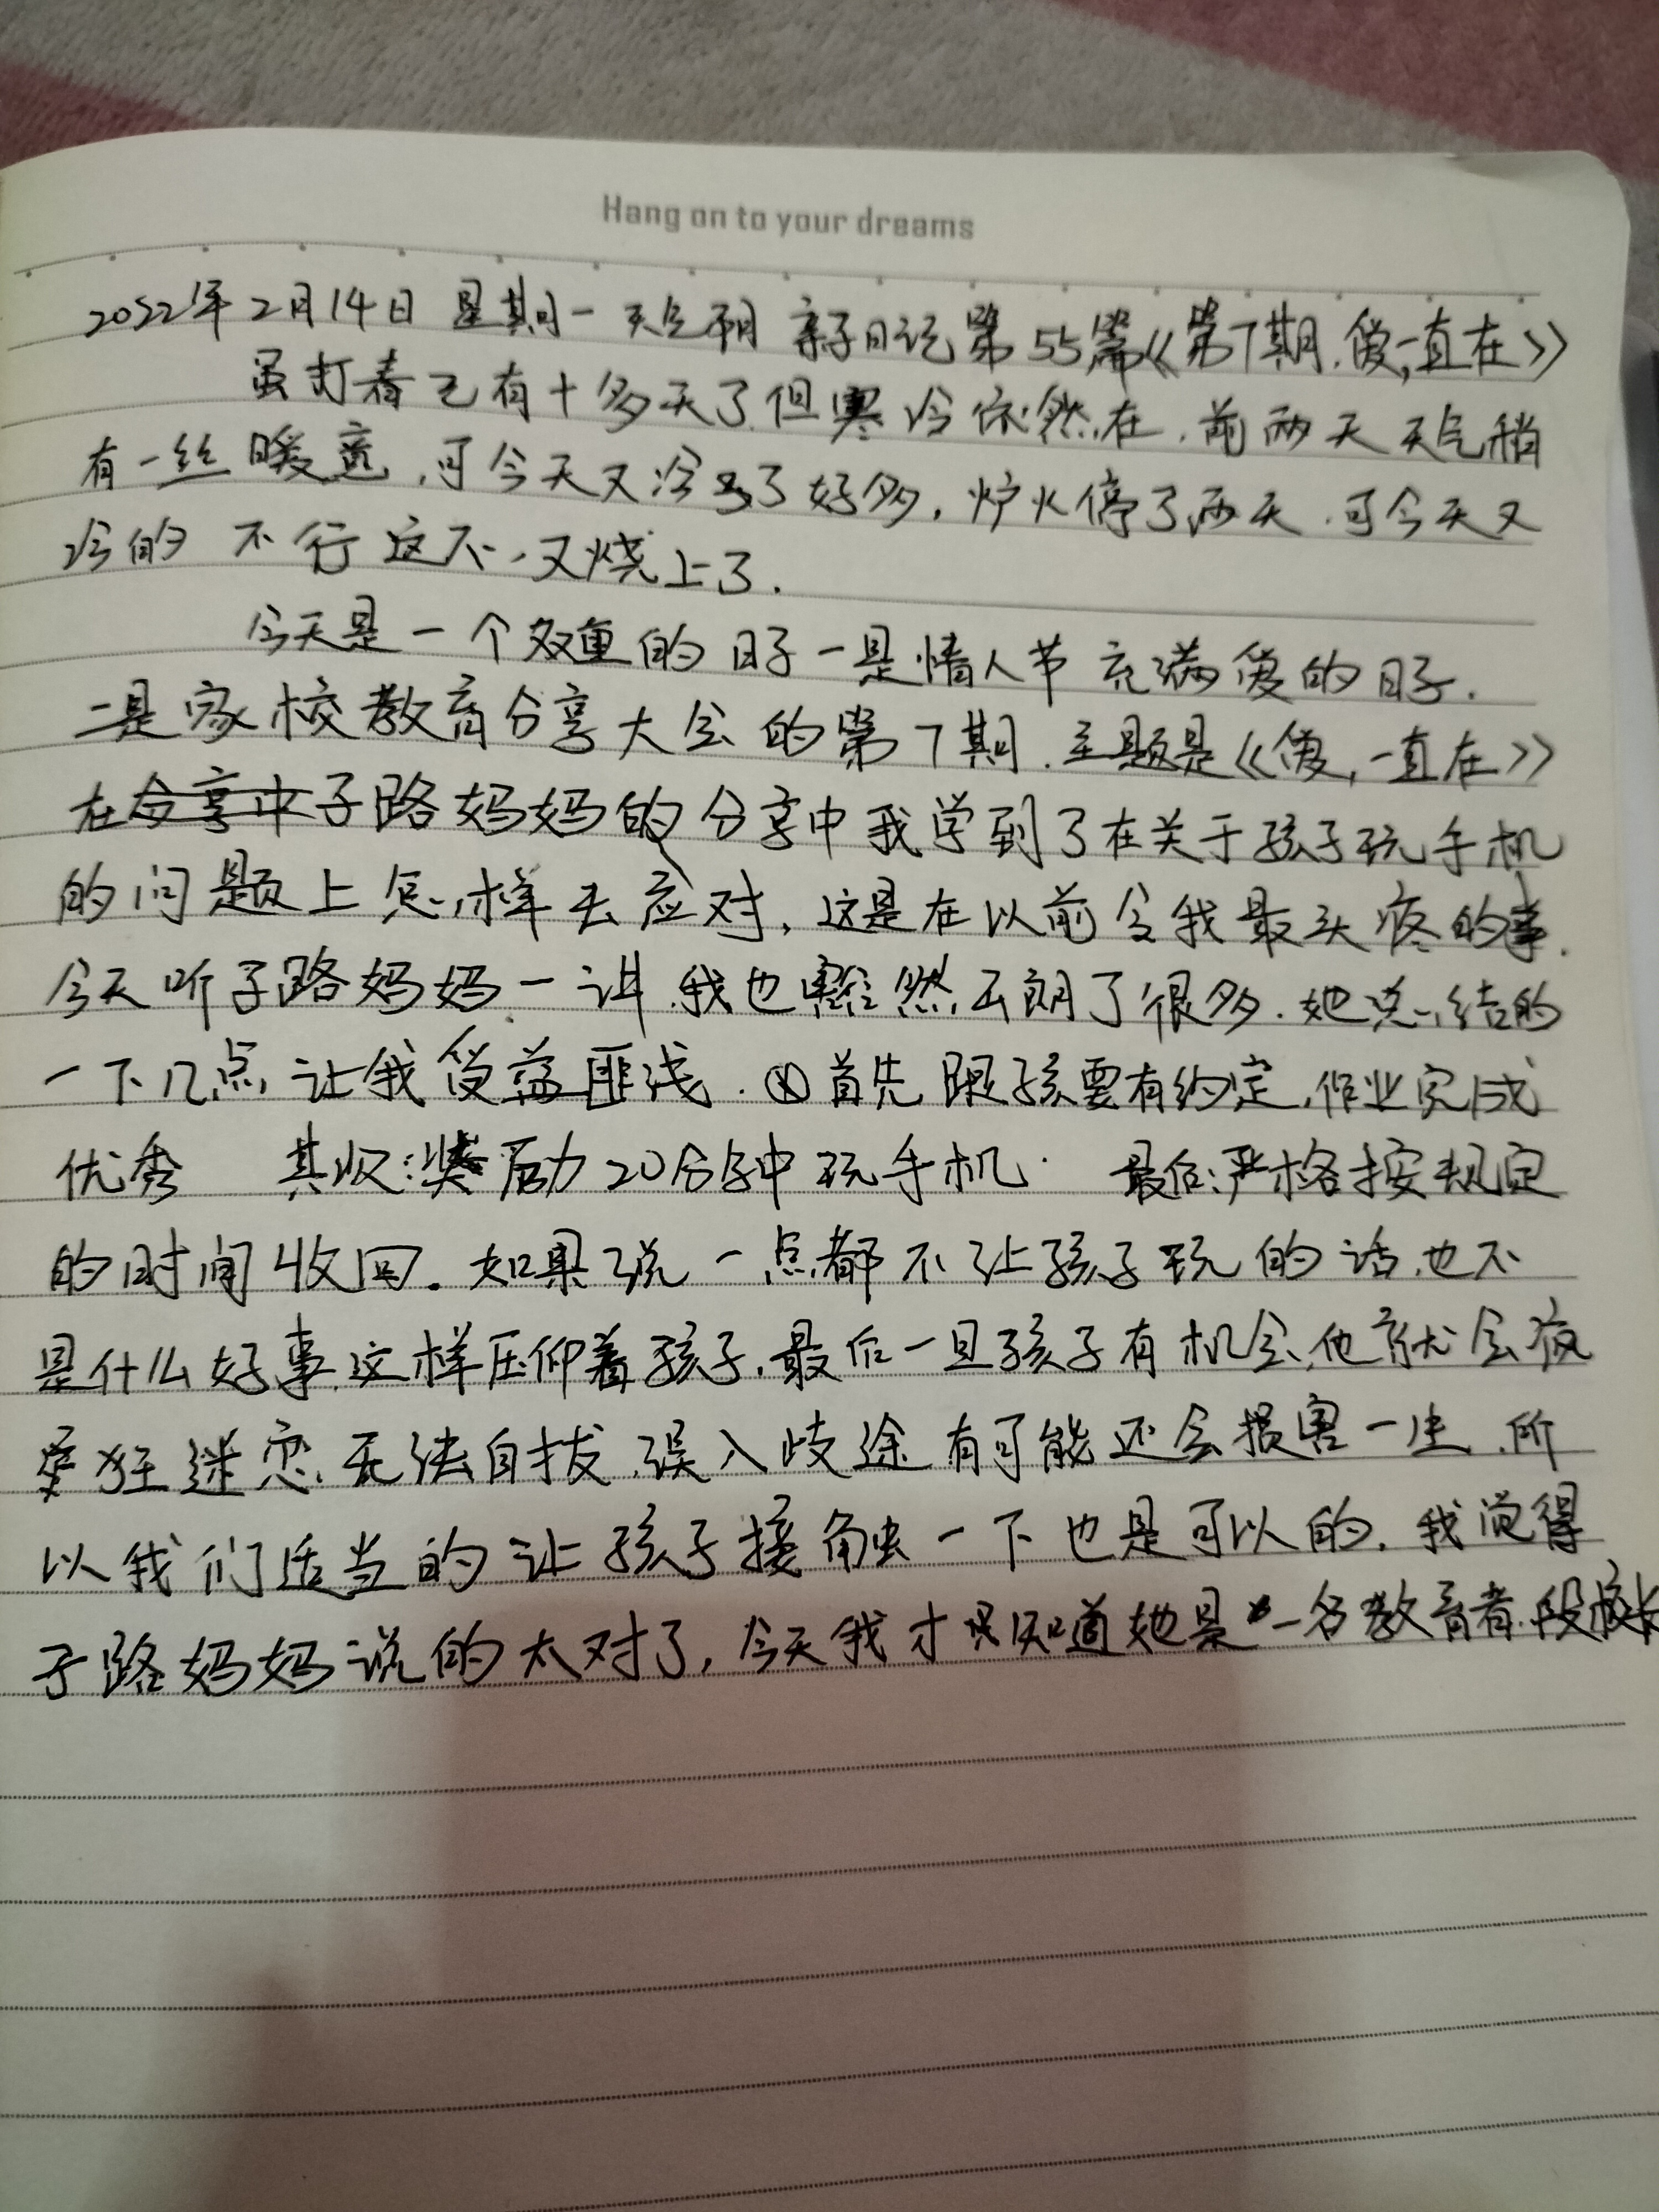 Hang on to your dreams
2022年2月14日 星期一 天气阴 亲子日记第55篇《第7期.爱,一直在》
虽打春已有十多天了但寒冷依然在.前两天天气稍
有一丝暖意,可今天又冷了好多,炉火停了两天.可今天又
冷的 不行这不,又烧上了.
今天是一个双重的日子一是情人节充满爱的日子.
二是家校教育分享大会的第7期.主题是《爱,一直在》
在分享中子路妈妈的分享中我学到了在关于孩子玩手机
的问题上怎样去应对,这是在以前令我最头疼的事.
今天听子路妈妈一讲.我也豁然开朗了很多.她总结的
一下几点让我受益匪浅.首先跟孩要有约定,作业完成
优秀 其次:奖励20分钟中玩手机. 最后:严格按规定
的时间收回.如果说一点都不让孩子玩的话.也不
是什么好事.这样压仰着孩子,最后一旦孩子有机会.他就会疯
狂迷恋.无法自拔.误入歧途有可能还会损害一生.所
以我们适当的让孩子接触一下也是可以的.我觉得
子路妈妈说的太对了,今天我才知道她是一名教育者.段校长